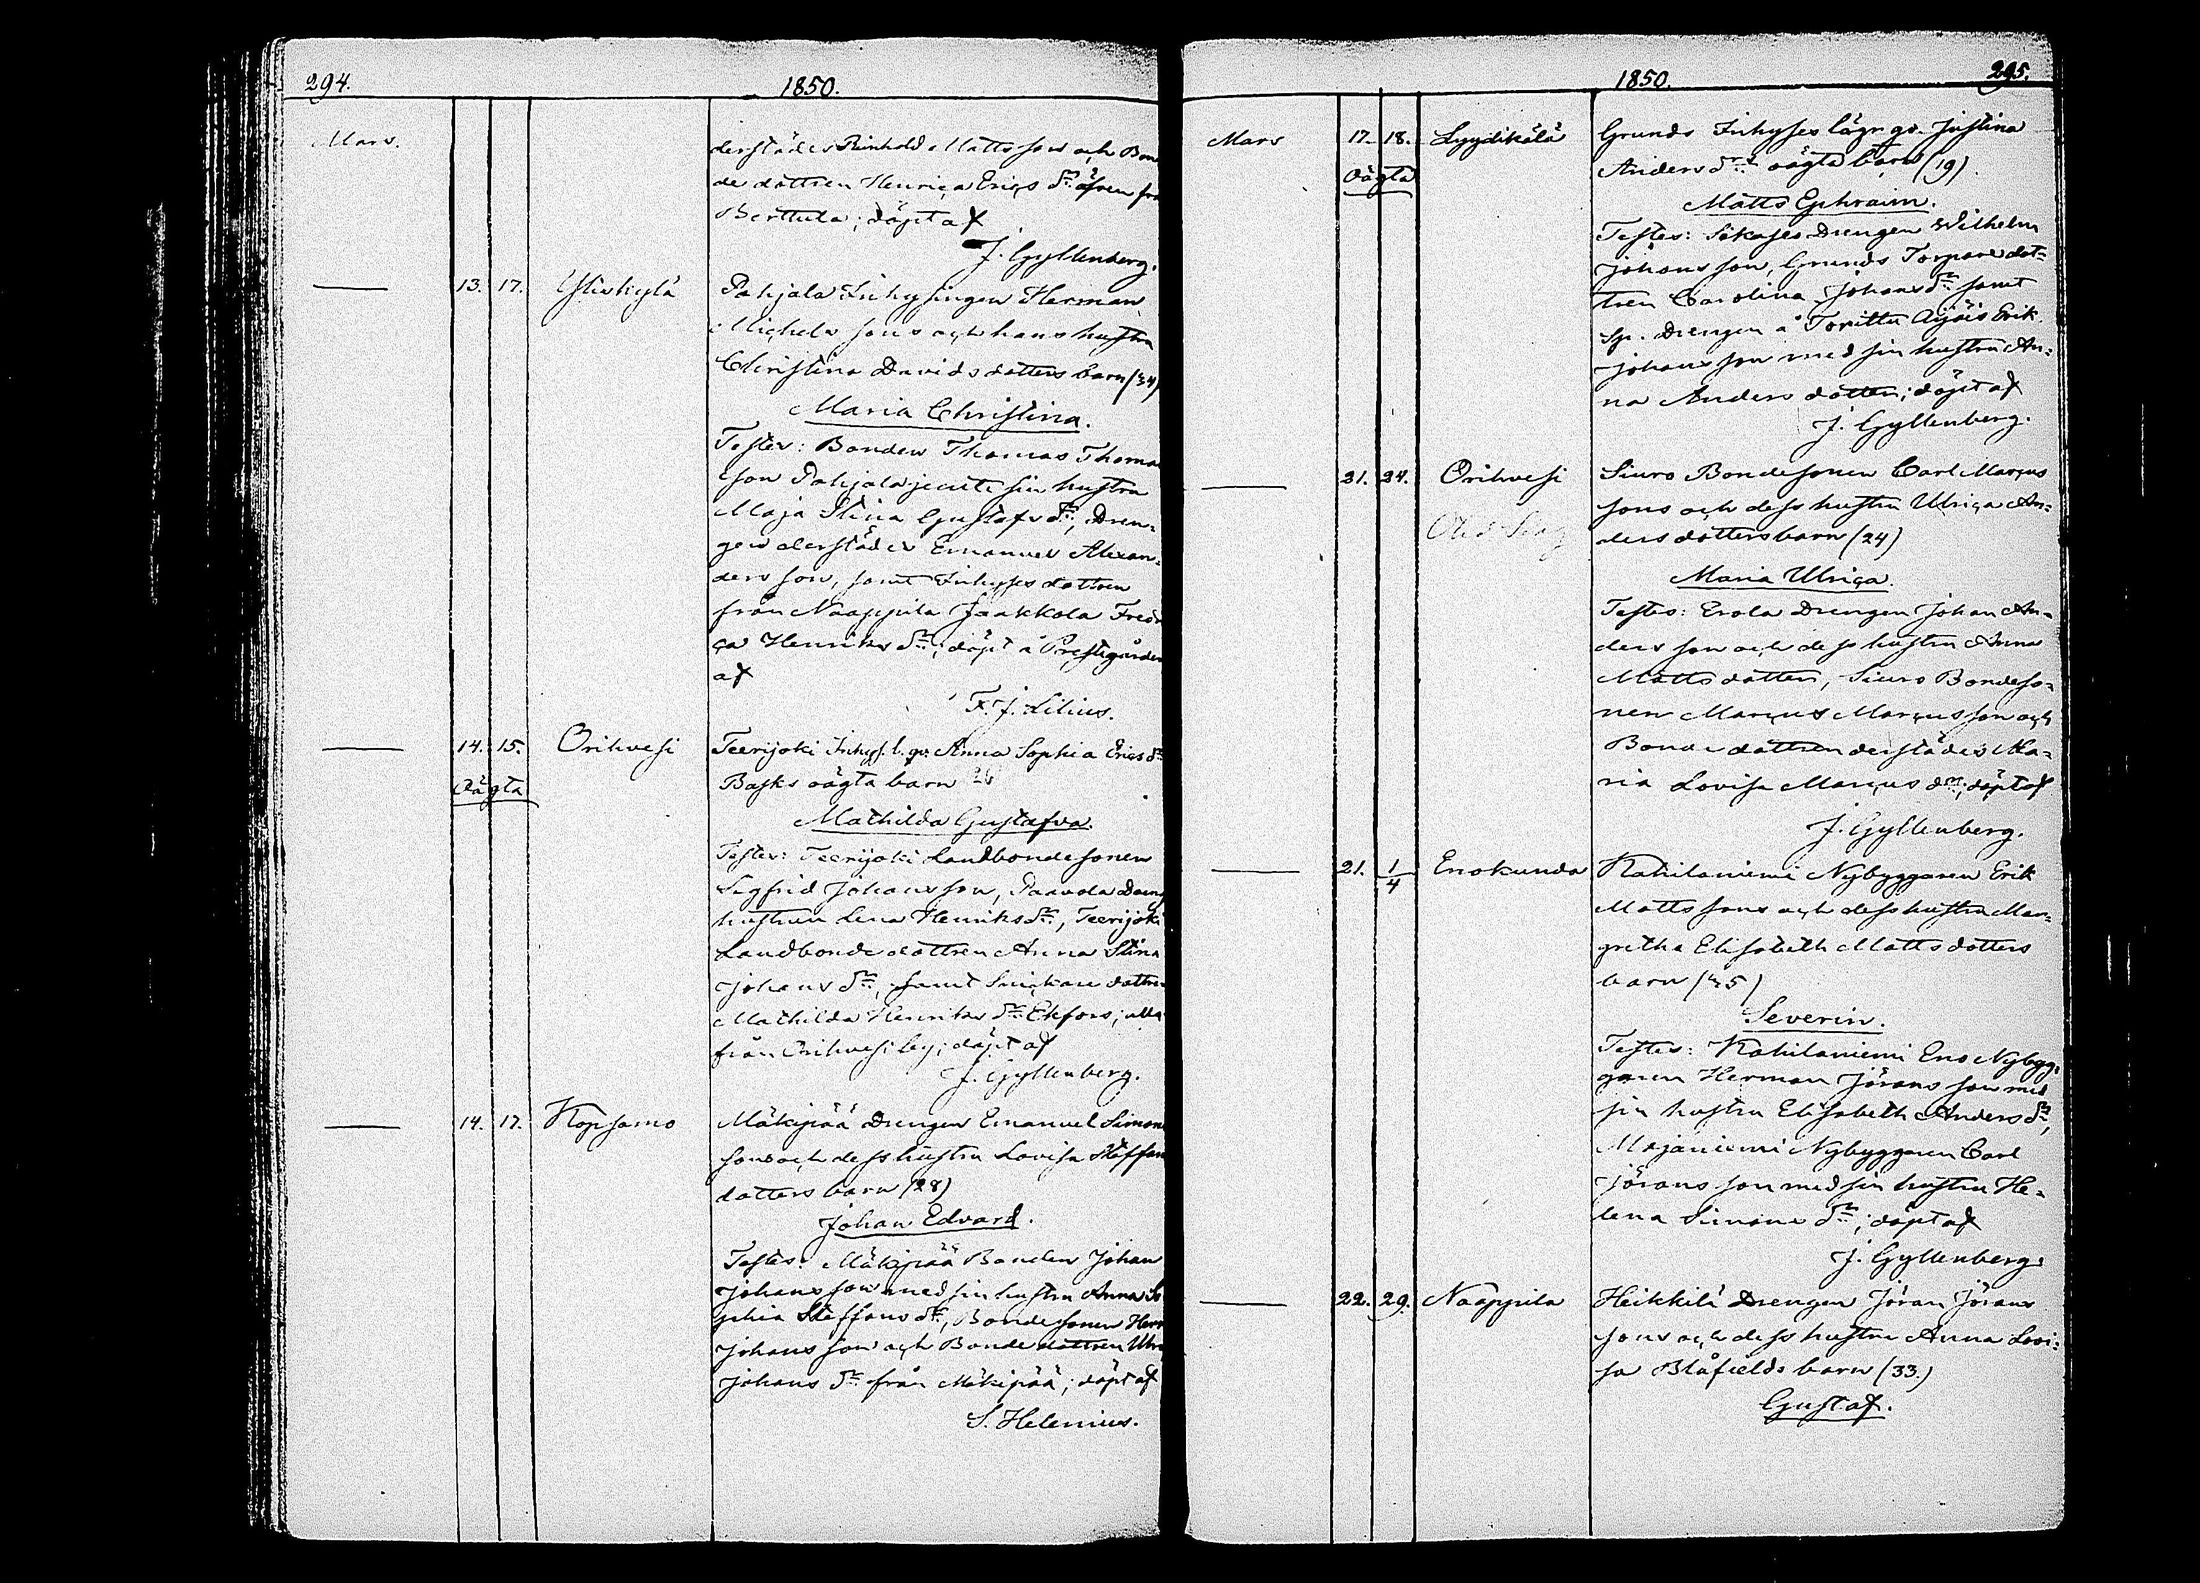 294.
1850.
Mars.
derstädes Reinhold Mattsson och Bon
de dottren Henrica Erics dr. äfven frå
Berttula; döpt af
J. Gyllenberg.
— 13. 17. Yliskylä
Pahjala Inhysingen Herman
Michels sons och hans hustru
Christina Davidsdotters barn (34)
Maria Christina.
Testes: Bonden Thomas Thomas
son Pahjala jemte sin hustru
Maja Stina Gustafs dr., Dren-
gen derstädes Emanuel Alexan-
ders son, samt Inhyses dottren
från Naappila Jaakkola Fredri
ca Henriks dr.; döpt å Prestgården
af
F. J. Lilius.
— 14. 15. Orihvesi
Oägta
Teerijoki Inhys. l. qv. Anna Sophia Erics dr.
Basks oägta barn 26
Mathilda Gustafva.
Testes: Teerijoki Landbondesonen
Sigfrid Johansson, Paavola Dreng
hustrun Lena Henriks dr., Teerijoki
Landbonde dottren Anna Stina
Johans dr., samt Snickare dottren
Mathilda Henriks dr. Ekfors; alla
från Orihvesi by; döpt af
J. Gyllenberg.
— 14. 17. Kopsamo
Mäkipää Drengen Emanuel Simon
sons och dess hustru Lovisa Staffans
dotters barn (28)
Johan Edvard.
Testes: Mäkipää Bonden Johan
Johansson med sin hustru Anna So
phia Staffans dr., Bondesonen Herm
Johans son och Bonde dottren Ulri
Johans dr. från Mäkipää; döpt af
S. Helenius.
1850.
295.
Mars 17. 18. Lyydikälä
Oägta
Grunds Inhyses lägr. qv. Justina
Anders drs oägta barn (19).
Matts Ephraim.
Testes: Drengen Wilhelm
Johansson, Grunds Torpare dot-
tren Carolina Johans dr. samt
Sp. Drengen å Torittu Äijäis Erik
Johansson med sin hustru An-
na Anders dotter; döpt af
J. Gyllenberg.
— 21. 24. Orihvesi
Siuro Bondesonen Carl Marcus
sons och dess hustru Ulrica An-
ders dotters barn (24)
Maria Ulrica.
Testes: Erola Drengen Johan An-
ders son och dess hustru Anna
Matts dotter, Siuro Bondeso-
nen Marcus Marcusson och
Bonde dottren derstädes Ma-
ria Lovisa Marcus dr.; döpt af
J. Gyllenberg.
— 21. 1/4 Enokunda
Kahilaniemi Nybyggaren Erik
Matts sons och dess hustru Mar-
gretha Elisabeth Matts dotters
barn (35)
Severin.
Testes: Kahilaniemi Eno Nybyg-
garen Herman Jörans son med
sin hustru Elisabeth Anders dr.,
Majaniemi Nybyggaren Carl
Jörans son med sin hustru He-
lena Simons dr.; döpt af
J. Gyllenberg.
— 22. 29. Naappila
Heikkilä Drengen Jöran Jörans
sons och dess hustru Anna Lovi-
sa Blåfields barn (33.)
Gustaf.